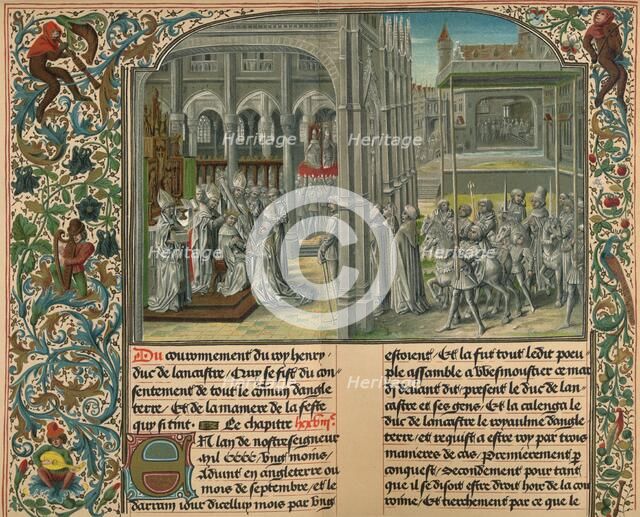 Du couronnement du roy henry
duc de lancastre / Quy se fist du con
sentement de tout le comun dangle
terre / Et de la maniere de la feste
quy si tint. Le chapitre
En lan de nostreseigneur
mil CCCC. Ungz moins,
Advint en angleterre ou
mois de septembre, et le
darrain iour dicelluy mois par ung
estoient / Et la fut tout ledit peu
ple assamble a Wesmoustier ce mar
di devant dit, present le duc de lan
castre et ses gens / Et la calenga le
duc de lancastre le royaulme dangle
terre / et requist a estre roy par trois
manieres de cas / Premierement p
conquest / Secondement pour tant
que il se disoit estre droit hoir de la cou
ronne / Et tierchement par ce que le
Heritage
Heritage
Heritage
Heritage
Heritage
Heritage